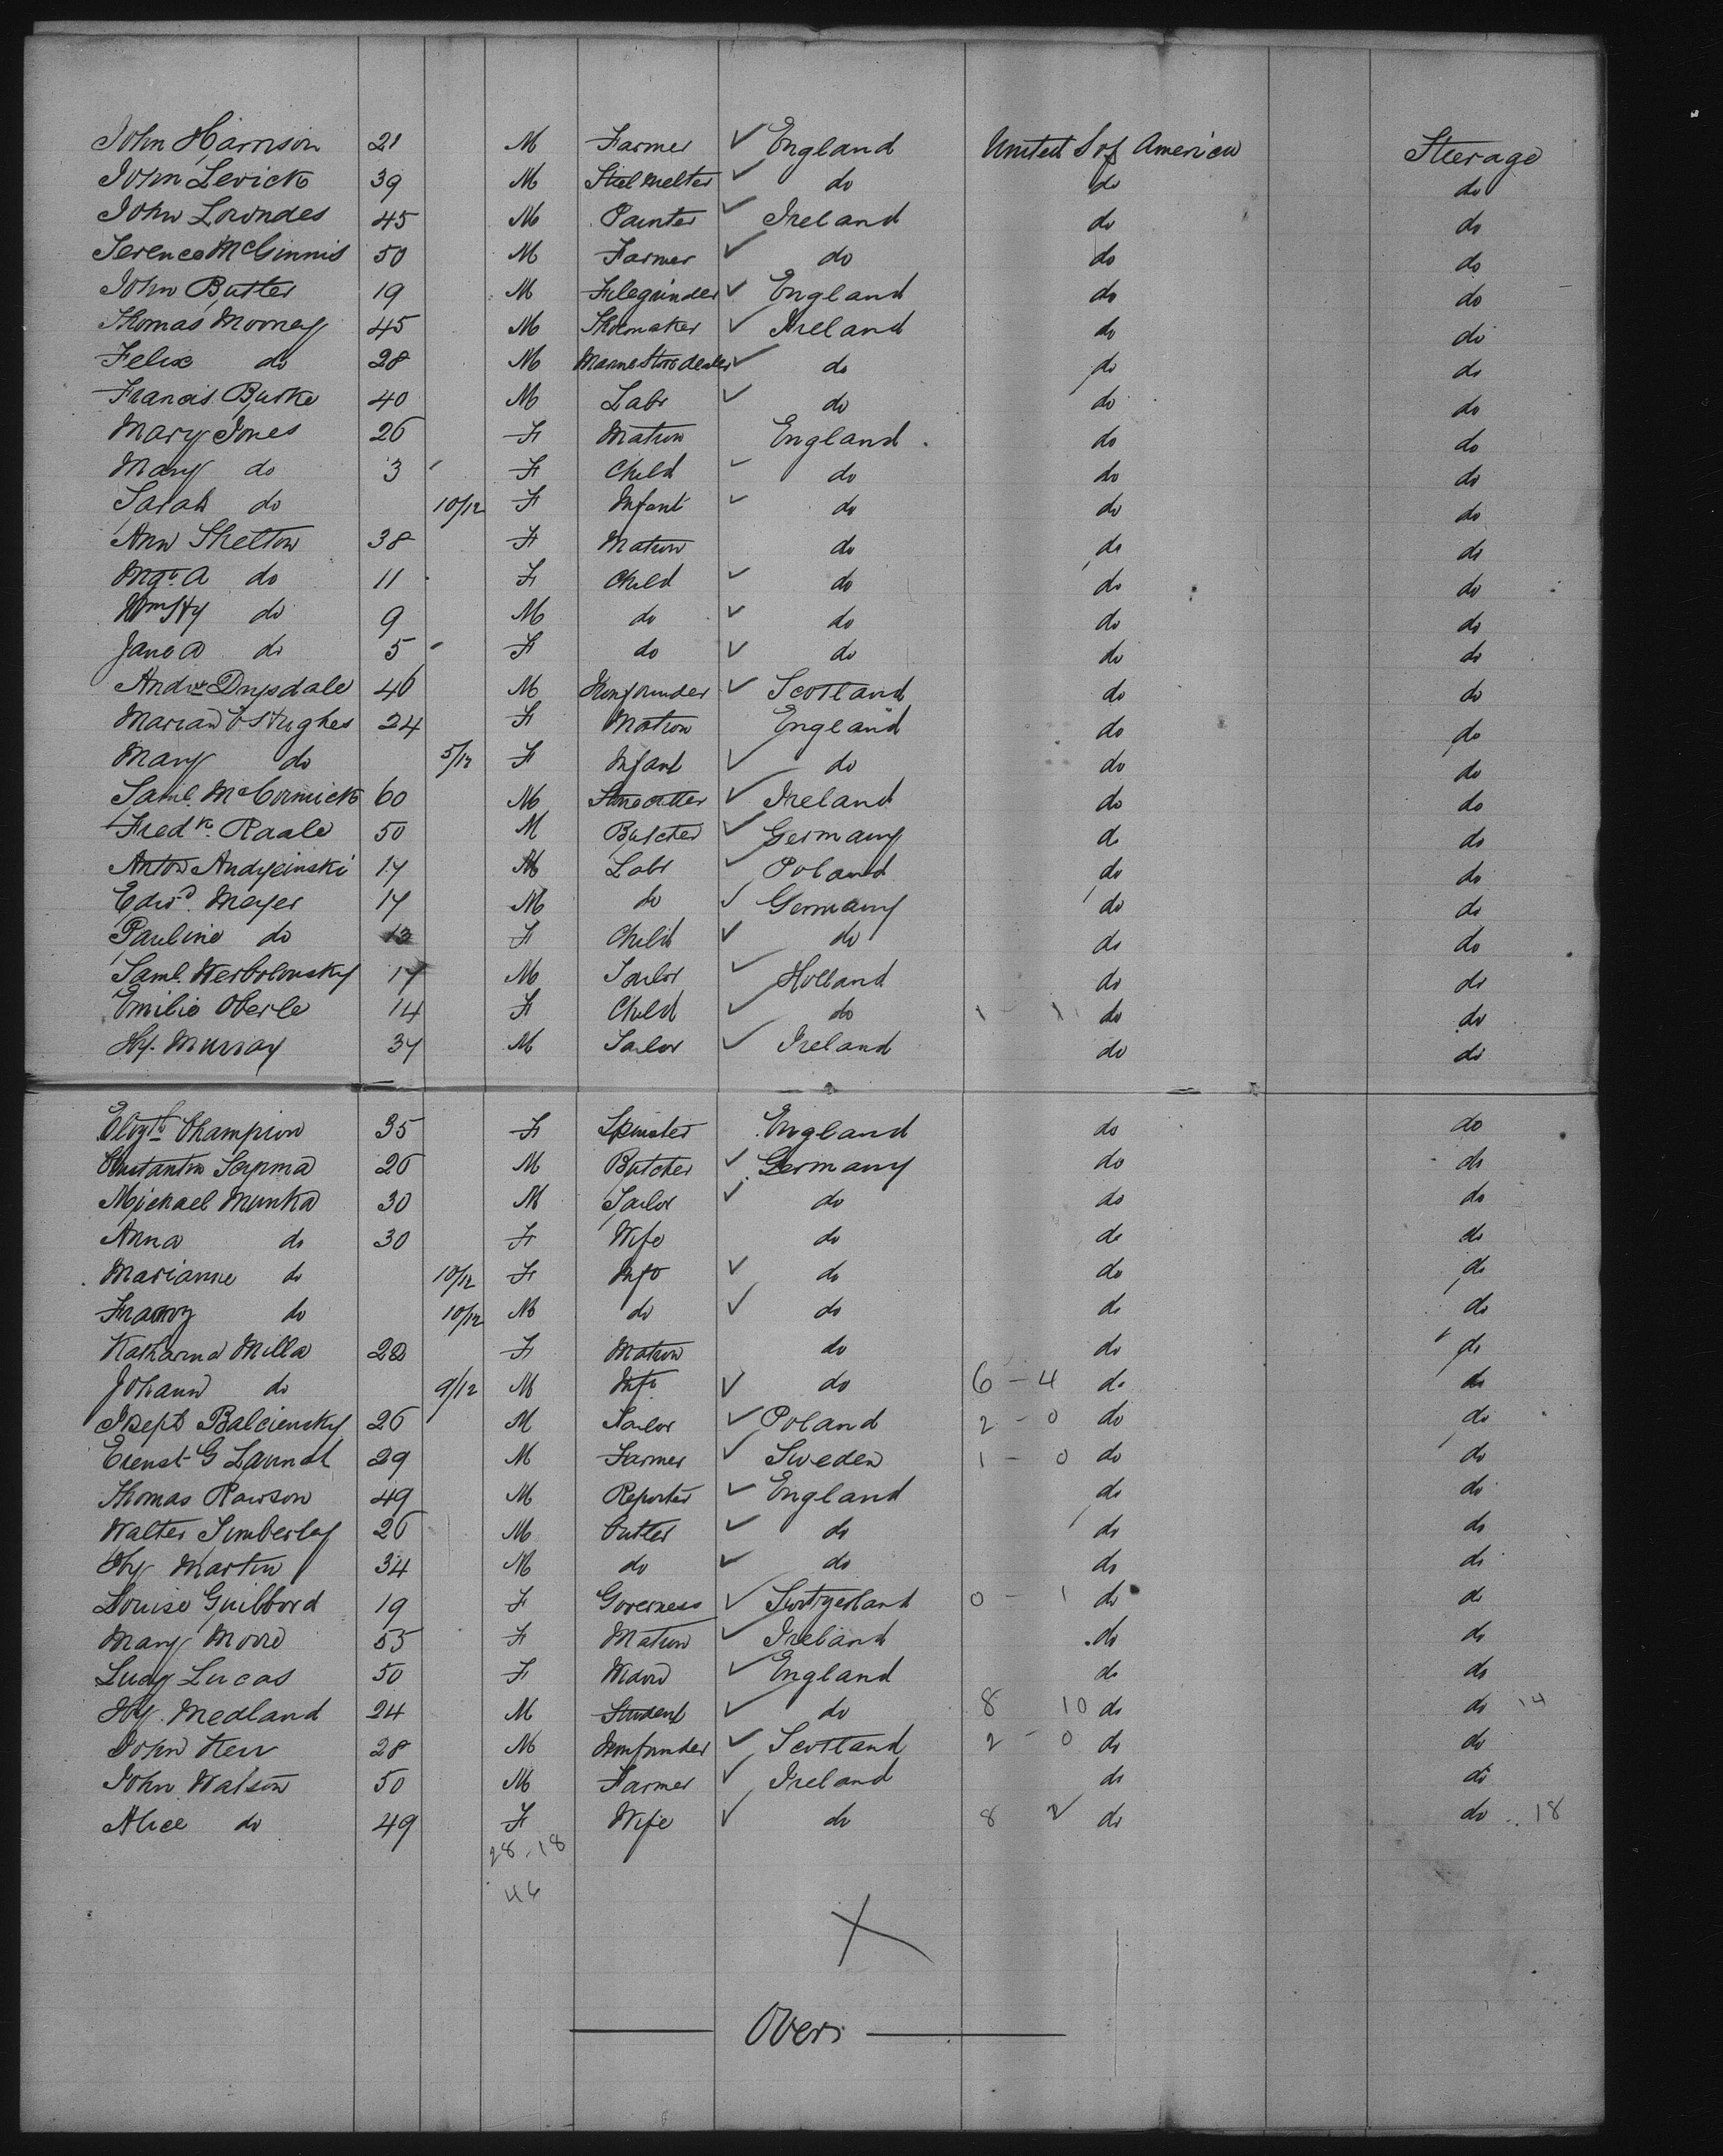 John Harrison 21 M Farmer ✓ England United S of America Steerage
John Levick 39 M Steel Melter ✓ do do do
John Lowndes 45 M Painter ✓ Ireland do do
Terence McGinnis 50 M Farmer ✓ do do do
John Butler 19 M Filegrinder ✓ England do do
Thomas Mooney 45 M Shoemaker ✓ Ireland do do
Felix do 28 M Marine Store dealer ✓ do do do
Francis Burke 40 M Labr ✓ do do do
Mary Jones 26 F Matron England do do
Mary do 3 F Child ✓ do do do
Sarah do 10/12 F Infant ✓ do do do
Ann Shelton 38 F Matron do do do
Mgt A do 11 F Child ✓ do do do
Wm Hy do 9 M do ✓ do do do
Jane A do 5 F do ✓ do do do
Andw Drysdale 46 M Ironfounder ✓ Scotland do do
Marian Hughes 24 F Matron England do do
Mary do 5/12 F Infant ✓ do do do
Saml. McCormick 60 M Stonecutter ✓ Ireland do do
Fredk. Raale 50 M Butcher ✓ Germany do do
Anton 17 M Labr ✓ Poland do do
Edwd. Mayer 17 M do ✓ Germany do do
Pauline do 13 F Child ✓ do do do
Saml. Werbolousky 17 M Tailor ✓ Holland do do
Emilie Oberle 14 F Child ✓ do 1 - 1 do do
Hy. Murray 37 M Sailor ✓ Ireland do do
Elizth Champion 35 F Spinster England do do
Constantin 26 M Butcher ✓ Germany do do
Michael Munka 30 M Tailor ✓ do do do
Anna do 30 F Wife do do do
Marianne do 10/12 F Inft ✓ do do do
do 10/12 M do ✓ do do do
Katharina Milla 28 F Matron do do do
Johann do 9/12 M Inft ✓ do 6 - 4 do do
Joseph Balciensky 26 M Tailor ✓ Poland 2 - 0 do do
Ernst G 29 M Farmer ✓ Sweden 1 - 0 do do
Thomas Rawson 49 M Reporter ✓ England do do
Walter Timberley 26 M Cutler ✓ do do do
Hy Martin 34 M do ✓ do do do
Louise Guilbord 19 F Governess ✓ Switzerland 0 - 1 do do
Mary Moore 55 F Matron ✓ Ireland do do
Lucy Lucas 50 F Widow ✓ England do do
Hy. Medland 24 M Student ✓ do 8 10 do do 14
John Kerr 28 M Ironfounder ✓ Scotland 2 - 0 do do
John Watson 50 M Farmer ✓ Ireland do do
Alice do 49 F Wife ✓ do 8 2 do do 18
28 - 18
46
X
Over